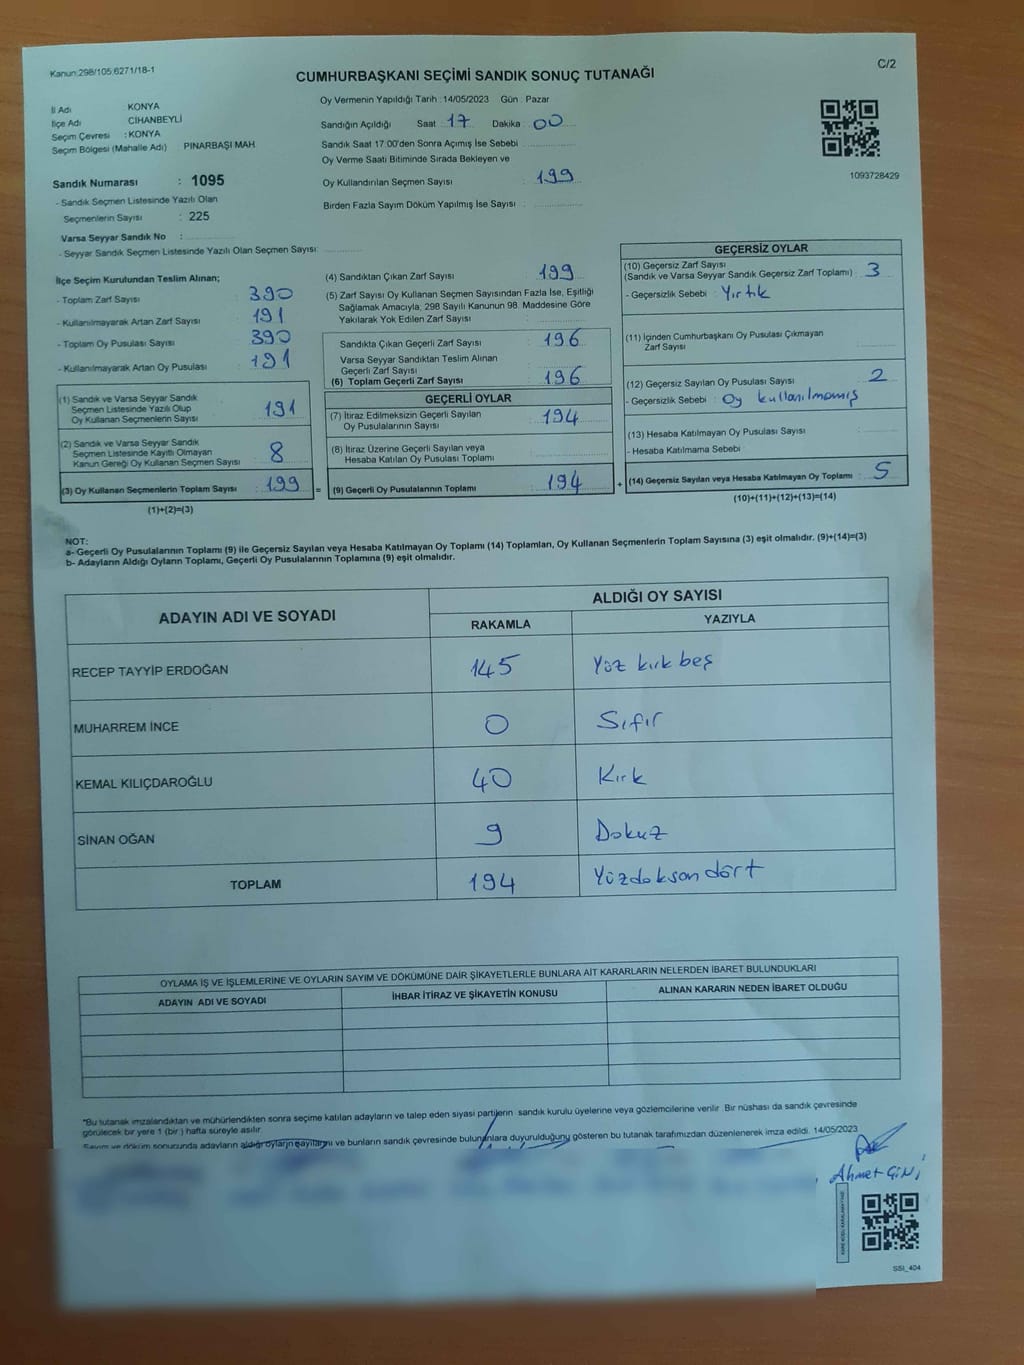 Kanun:298/105:6271/18-1
C/2
CUMHURBAŞKANI SEÇİMİ SANDIK SONUÇ TUTANAĞI
İl Adı KONYA
İlçe Adı CİHANBEYLİ
Seçim Çevresi : KONYA
Seçim Bölgesi (Mahalle Adı) PINARBAŞI MAH
Sandık Numarası : 1095
- Sandık Seçmen Listesinde Yazılı Olan
Seçmenlerin Sayısı : 225
Varsa Seyyar Sandık No :
- Seyyar Sandık Seçmen Listesinde Yazılı Olan Seçmen Sayısı:
Oy Vermenin Yapıldığı Tarih : 14/05/2023 Gün : Pazar
Sandığın Açıldığı Saat 17 Dakika 00
Sandık Saat 17:00'den Sonra Açımış İse Sebebi
Oy Verme Saati Bitiminde Sırada Bekleyen ve
Oy Kullandırılan Seçmen Sayısı : 199
Birden Fazla Sayım Döküm Yapılmış İse Sayısı :
1093728429
İlçe Seçim Kurulundan Teslim Alınan;
- Toplam Zarf Sayısı : 390
- Kullanılmayarak Artan Zarf Sayısı : 191
- Toplam Oy Pusulası Sayısı : 390
- Kullanılmayarak Artan Oy Pusulası : 191
(1) Sandık ve Varsa Seyyar Sandık
Seçmen Listesinde Yazılı Olup
Oy Kullanan Seçmenlerin Sayısı : 191
(2) Sandık ve Varsa Seyyar Sandık
Seçmen Listesinde Kayıtlı Olmayan
Kanun Gereği Oy Kullanan Seçmen Sayısı : 8
(3) Oy Kullanan Seçmenlerin Toplam Sayısı : 199 =
(1)+(2)=(3)
(4) Sandıktan Çıkan Zarf Sayısı : 199
(5) Zarf Sayısı Oy Kullanan Seçmen Sayısından Fazla İse, Eşitliği
Sağlamak Amacıyla, 298 Sayılı Kanunun 98. Maddesine Göre
Yakılarak Yok Edilen Zarf Sayısı :
Sandıkta Çıkan Geçerli Zarf Sayısı : 196
Varsa Seyyar Sandıktan Teslim Alınan
Geçerli Zarf Sayısı :
(6) Toplam Geçerli Zarf Sayısı : 196
GEÇERLİ OYLAR
(7) İtiraz Edilmeksizin Geçerli Sayılan
Oy Pusulalarının Sayısı : 194
(8) İtiraz Üzerine Geçerli Sayılan veya
Hesaba Katılan Oy Pusulası Toplamı :
(9) Geçerli Oy Pusulalarının Toplamı : 194 +
GEÇERSİZ OYLAR
(10) Geçersiz Zarf Sayısı
(Sandık ve Varsa Seyyar Sandık Geçersiz Zarf Toplamı) : 3
- Geçersizlik Sebebi : Yırtık
(11) İçinden Cumhurbaşkanı Oy Pusulası Çıkmayan
Zarf Sayısı :
(12) Geçersiz Sayılan Oy Pusulası Sayısı : 2
- Geçersizlik Sebebi : Oy kullanılmamış
(13) Hesaba Katılmayan Oy Pusulası Sayısı :
- Hesaba Katılmama Sebebi
(14) Geçersiz Sayılan veya Hesaba Katılmayan Oy Toplamı : 5
(10)+(11)+(12)+(13)=(14)
NOT:
a- Geçerli Oy Pusulalarının Toplamı (9) ile Geçersiz Sayılan veya Hesaba Katılmayan Oy Toplamı (14) Toplamları, Oy Kullanan Seçmenlerin Toplam Sayısına (3) eşit olmalıdır. (9)+(14)=(3)
b- Adayların Aldığı Oyların Toplamı, Geçerli Oy Pusulalarının Toplamına (9) eşit olmalıdır.
ADAYIN ADI VE SOYADI ALDIĞI OY SAYISI
RAKAMLA YAZIYLA
RECEP TAYYİP ERDOĞAN 145 Yüz kırk beş
MUHARREM İNCE 0 Sıfır
KEMAL KILIÇDAROĞLU 40 Kırk
SİNAN OĞAN 9 Dokuz
TOPLAM 194 Yüzdoksan dört
OYLAMA İŞ VE İŞLEMLERİNE VE OYLARIN SAYIM VE DÖKÜMÜNE DAİR ŞİKAYETLERLE BUNLARA AİT KARARLARIN NELERDEN İBARET BULUNDUKLARI
ADAYIN ADI VE SOYADI İHBAR İTİRAZ VE ŞİKAYETİN KONUSU ALINAN KARARIN NEDEN İBARET OLDUĞU
"Bu tutanak imzalandıktan ve mühürlendikten sonra seçime katılan adayların ve talep eden siyasi partilerin sandık kurulu üyelerine veya gözlemcilerine verilir. Bir nüshası da sandık çevresinde
görülecek bir yere 1 (bir ) hafta süreyle asılır.
Sayım ve döküm sonucunda adayların aldığı oyların sayılarını ve bunların sandık çevresinde bulunanlara duyurulduğunu gösteren bu tutanak tarafımızdan düzenlenerek imza edildi. 14/05/2023
Ahmet ÇİNİ
SSİ_404